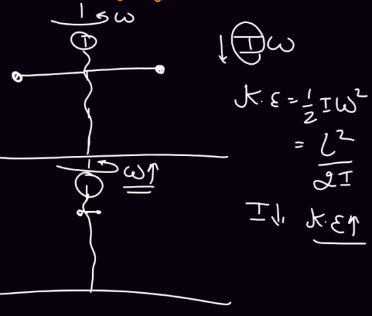 ω
I
↓ Iω
K.E = 1/2 Iω²
= L²/2I
ω↑
I↓, K.E↑